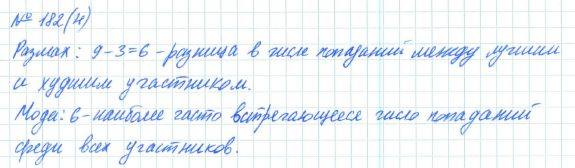 № 182(н)
Размах: 9-3=6 - разница в числе попаданий между лучшим
и худшим участником.
Мода: 6 - наиболее часто встречающееся число попаданий
среди всех участников.